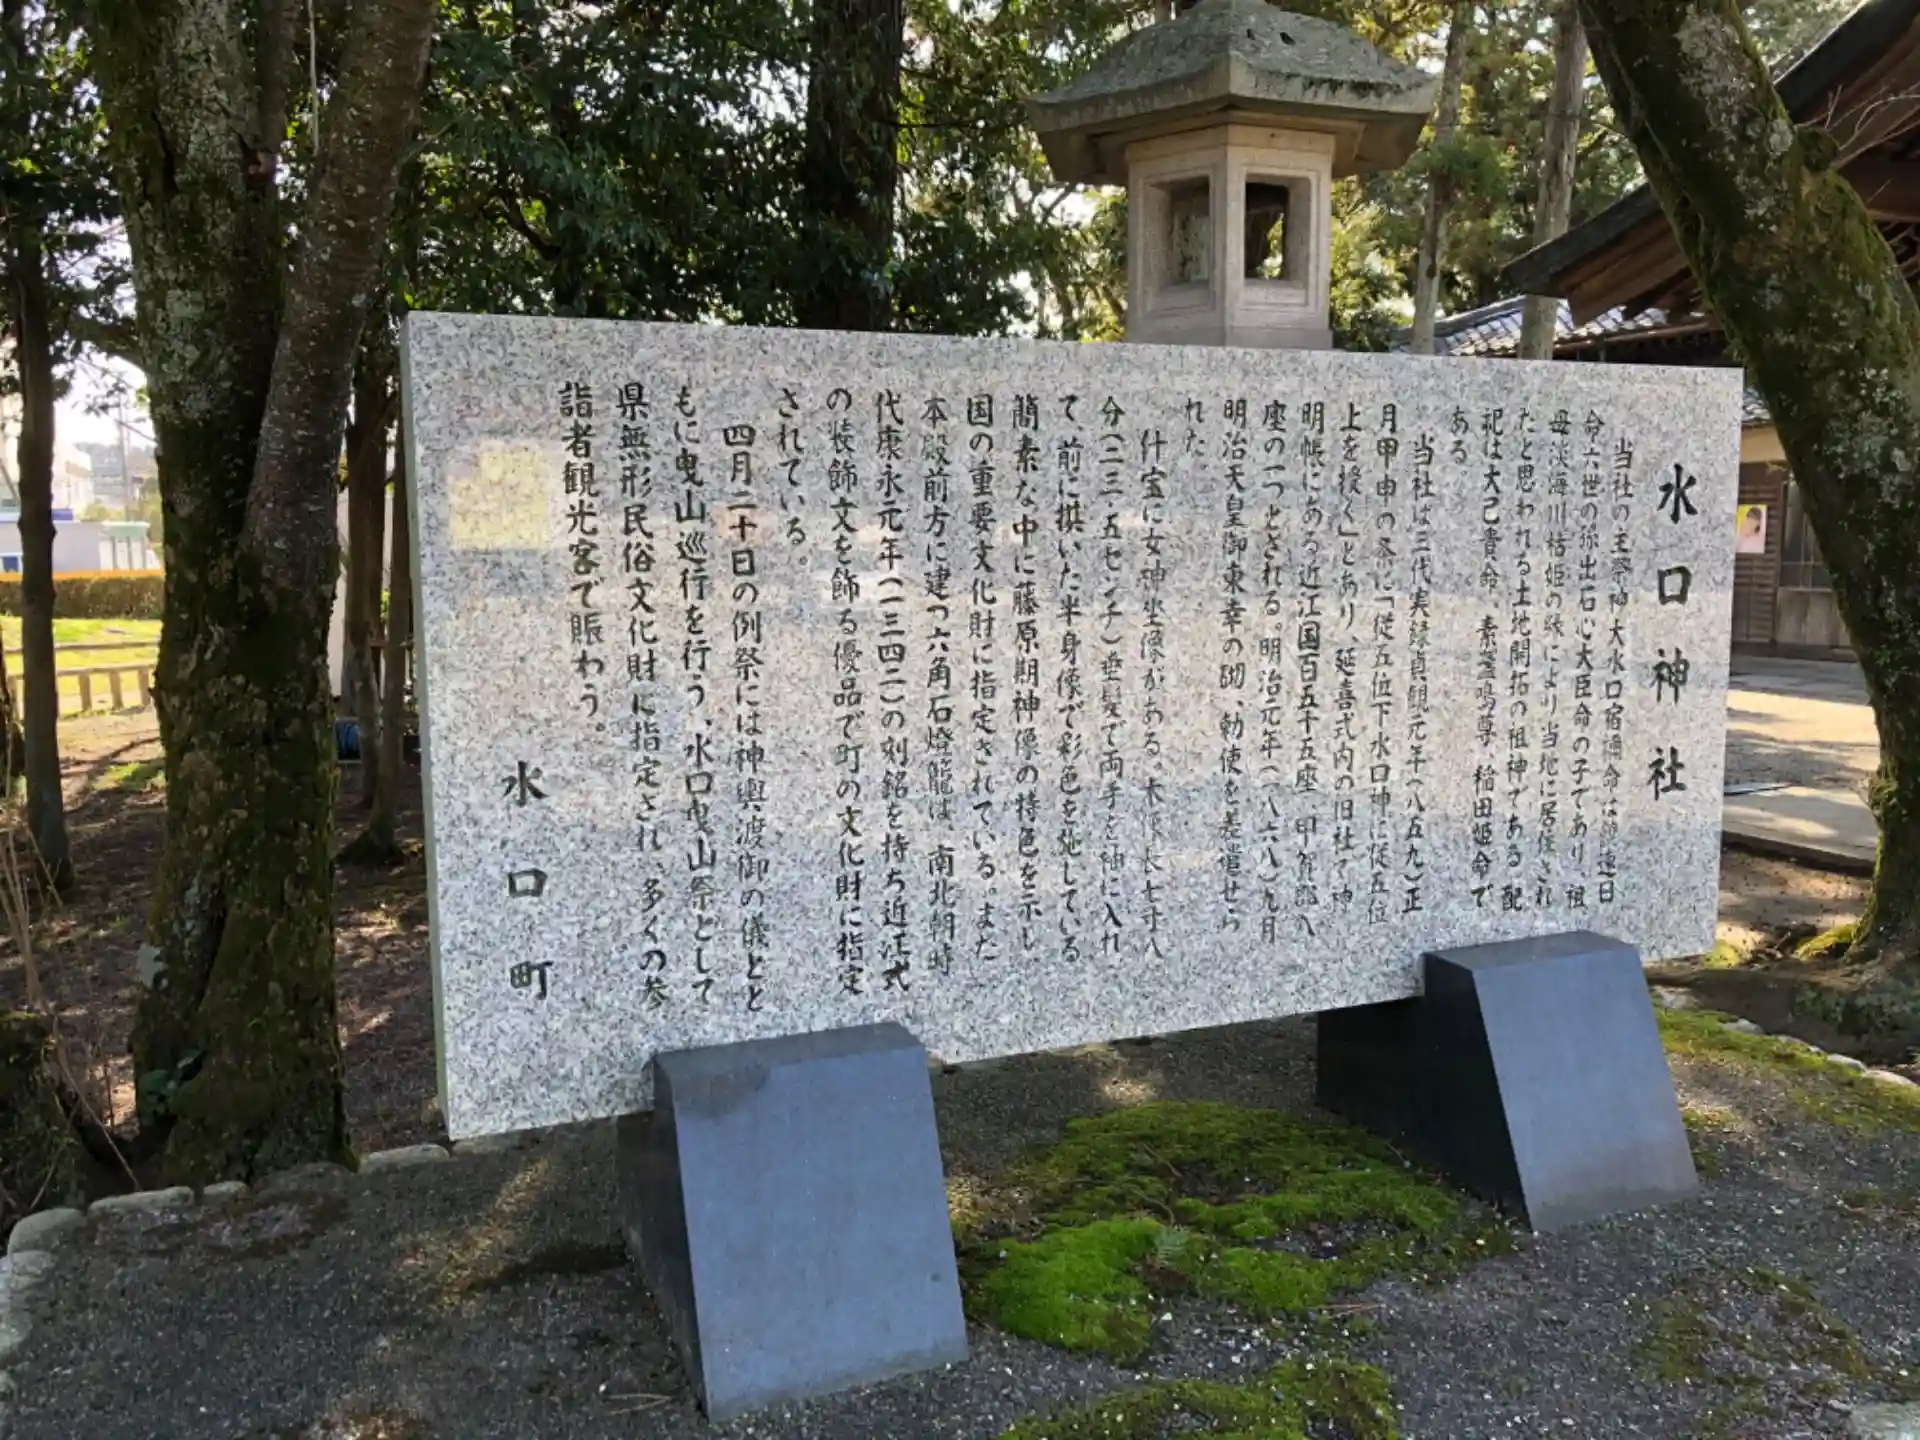 水口神社
当社の主祭神大水口宿禰命は饒速日
命六世の孫出石心大臣命の子であり、祖
母淡海川枯姫の縁により当地に居住され
たと思われる土地開拓の祖神である 配
祀は大己貴命、素盞嗚尊、稲田姫命で
ある。
当社は三代実録貞観元年(八五九)正
月甲申の条に「従五位下水口神に従五位
上を授く」とあり、延喜式内の旧社で神
明帳にある近江国百五十五座、甲賀郡八
座の一つとされる。明治元年(一八六八)九月
明治天皇御東幸の砌、勅使を差遣せら
れた。
什宝に女神坐像がある。木像長七寸八
分(二三・五センチ)垂髪で両手を袖に入れ
て、前に拱いた半身像で彩色を施している
簡素な中に藤原期神像の特色を示し
国の重要文化財に指定されている。また
本殿前方に建つ六角石燈籠は、南北朝時
代康永元年(一三四二)の刻銘を持ち近江式
の装飾文を飾る優品で町の文化財に指定
されている。
四月二十日の例祭には神輿渡御の儀とと
もに曳山巡行を行う、水口曳山祭として
県無形民俗文化財に指定され、多くの参
詣者観光客で賑わう。
水口町